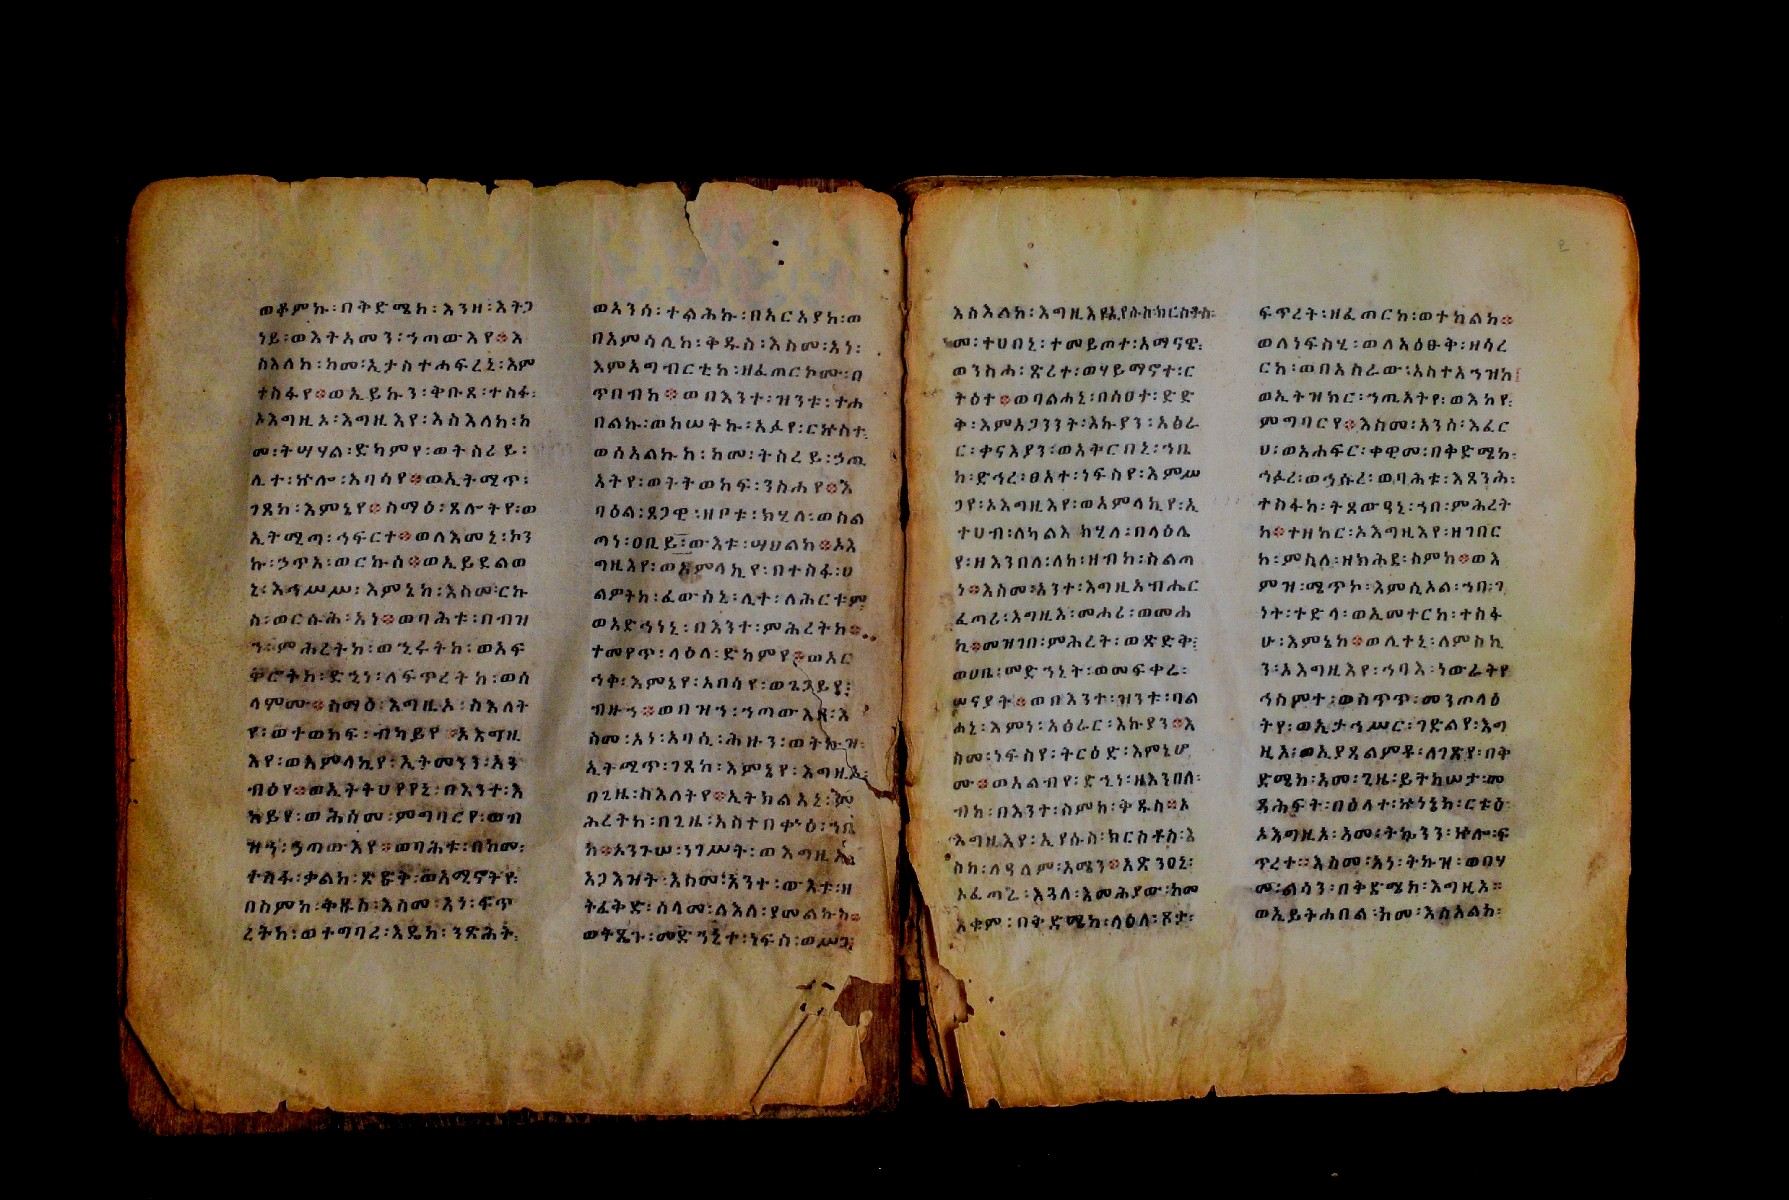 ወቆምኩ፡በቅድሜከ፡እንዘ፡እትጋ
ነይ፡ወእትአመን፡ኀጣውእየ፨እ
ስእለከ፡ከመ፡ኢታስተሐፍረኒ፡እም
ተስፋየ፨ወኢይኩን፡ቅቡጸ፡ተስፋ፡
ኦእግዚኦ፡እግዚእየ፡እስእለከ፡ከ
መ፡ትሣሃል፡ድካምየ፡ወትስረይ፡
ሊተ፡ኵሎ፡አባሳየ፨ወኢትሚጥ፡
ገጸከ፡እምኔየ፨ስማዕ፡ጸሎትየ፡ወ
ኢትሚጣ፡ኀፍርተ፨ወለእመኒ፡ኮን
ኩ፡ኃጥአ፡ወርኩሰ፨ወኢይደልወ
ኒ፡እኅሥሥ፡እምኔከ፡እስመ፡ርኩ
ስ፡ወርሱሕ፡አነ፨ወባሕቱ፡በብዝ
ኀ፡ምሕረትከ፡ወኂሩትከ፡ወአፍ
ቅሮትከ፡ድኂነ፡ለፍጥረትከ፡ወሰ
ላምሙ፨ስማዕ፡እግዚኦ፡ስእለት
የ፡ወተወከፍ፡ብካይየ፨ኦእግዚ
እየ፡ወአምላኪየ፡ኢትመንን፡አን
ብዕየ፨ወኢትትሀየየኒ፡በእንተ፡እ
ከይየ፡ወሕስመ፡ምግባርየ፡ወብ
ዝኀ፡ኃጣውእየ፨ወባሕቱ፡በከመ፡
ተስፋ፡ቃልከ፡ጽድቅ፡ወአሚኖትየ፡
በስምከ፡ቅዱስ፡እስመ፡አነ፡ፍጥ
ረትከ፡ወተግባረ፡እዴከ፡ንጽሕት፡
ወአንሰ፡ተልሕኩ፡በአርአያከ፡ወ
በአምሳሊከ፡ቅዱስ፡እስመ፡አነ፡
እምአግብርቲከ፡ዘፈጠርኮሙ፡በ
ጥበብከ፨ወበእንተ፡ዝንቱ፡ተሐ
በልኩ፡ወከሠትኩ፡አፉየ፡ርኵስተ
ወሰአልኩከ፡ከመ፡ትስረይ፡ኃጢ
አትየ፡ወትትወከፍ፡ንስሐየ፨እ
ባዕል፡ጸጋዊ፡ዘቦቱ፡ክሂለ፡ወስል
ጣነ፡ዐቢይ፡ውእቱ፡ሣህልከ፨ኦእ
ግዚእየ፡ወአምላኪየ፡በተስፋ፡ሀ
ልዎትከ፡ፈውስኒ፡ሊተ፡ለሕርተም
ወአድኅነኒ፡በእንተ፡ምሕረትከ፨
ተመየጥ፡ላዕለ፡ድካምየ፨ወአር
ኅቅ፡እምኔየ፡አበሳየ፡ወጌጋይየ፡
ብዙኀ፨ወባዝኀ፡ኀጣውእጸ፡እ
ስመ፡አነ፡አባሲ፡ሕዙን፡ወትኩዝ፡
ኢትሚጥ፡ገጸከ፡እምኔየ፡እግዚኦ፡
በጊዜ፡ስእለትየ፨ኢትክልአኒ፡ም
ሕረትከ፡በጊዜ፡አስተበቍዕ፡ኀቤ
ከ፨አንጉሠ፡ነገሥት፡ወእግዚአ
አጋእዝት፡እስመ፡አንተ፡ውእቱ፡ዘ
ትፈቅድ፡ሰላመ፡ለእለ፡ያመልኩከ፨
ወትጼጉ፡መድኀኒተ፡ነፍስ፡ወሥጋ
እስእልከ፡እግዚእየ፡ኢየሱስ፡ክርስቶስ፡
መ፡ተሀበኒ፡ተመይጦተ፡አማናዊ፡
ወንስሐ፡ጽሪተ፡ወሃይማኖተ፡ር
ትዕተ፨ወባልሐኒ፡በሰዐተ፡ድድ
ቅ፡እምአጋንንት፡እኩያን፡አፅራ
ር፡ቀናእያን፡ወአቅርበኒ፡ኀቤ
ከ፡ድኅረ፡ፀአተ፡ነፍስየ፡እምሥ
ጋየ፡ኦእግዚእየ፡ወአምላኪየ፡ኢ
ተሀብ፡ለካልእ፡ክሂለ፡በላዕሌ
የ፡ዘእንበለ፡ለከ፡ዘብከ፡ስልጣ
ነ፨እስመ፡አንተ፡እግዚአብሔር
ፈጣሪ፡እግዚእ፡መሐሪ፡ወመሐ
ኪ፨መዝገበ፡ምሕረት፡ወጽድቅ፡
ወሀቤ፡መድኀኒት፡ወመፍቀሬ፡
ሠናያት፨ወበእንተ፡ዝንቱ፡ባል
ሐኒ፡እምነ፡አዕራር፡እኩያን፨እ
ስመ፡ነፍስየ፡ትርዕድ፡እምኔሆ
ሙ፨ወአልብየ፡ድኂነ፡ዘእንበለ፡
ብከ፡በእንተ፡ስምከ፡ቅዱስ፨ኦ
እግዚእየ፡ኢየሱስ፡ክርስቶስ፡እ
ስከ፡ለዓለም፡አሜን፨አጽንዐኒ፡
ኦፈጣሪ፡እጓለ፡እመሕያው፡ከመ
እቁም፡በቅድሜከ፡ላዕለ፡ጾታ፡
ፍጥረት፡ዘፈጠርከ፡ወተከልከ፨
ወለነፍስሂ፡ወለአዕፁቅ፡ዘሳረ
ርከ፡ወበአስራው፡አስተአኀዝከ
ወኢትዝከር፡ኀጢአትየ፡ወእከየ፡
ምግባርየ፨እስመ፡አንሰ፡እፈር
ሀ፡ወአሐፍር፡ቀዊመ፡በቅድሜከ፡
ኅፉረ፡ወኅሱረ፡ወባሕቱ፡እጸንሕ፡
ተስፋከ፡ትጸውዓኒ፡ኀበ፡ምሕረት
ከ፨ተዘከር፡ኦእግዚእየ፡ዘገበር
ከ፡ምስለ፡ዘክሕደ፡ስምከ፨ወእ
ምዝ፡ሚጥኮ፡እምሲኦል፡ኀበ፡ገ
ነት፡ተድላ፡ወኢመተርከ፡ተስፋ
ሁ፡እምኔከ፨ወሊተኒ፡ለምስኪ
ን፡ኦእግዚእየ፡ኀባእ፡ነውራትየ
ኅስምተ፡ወስጥጥ፡መንጦላዕ
ትየ፡ወኢታኅሥር፡ገድልየ፡እግ
ዚኦ፡ወኢያጸልምዎ፡ለገጽየ፡በቅ
ድሜከ፡አመ፡ጊዜ፡ይትከሠታ፡መ
ጻሕፍት፡በዕለተ፡ኵነኔከ፡ርቱዕ፡
ኦእግዚኦ፡አመ፡ትኴንን፡ኵሎ፡ፍ
ጥረተ፨እስመ፡አነ፡ትኩዝ፡ወበሃ
መ፡ልሳን፡በቅድሜከ፡እግዚኦ።
ወኢይትሐበል፡ከመ፡እስአልከ፡